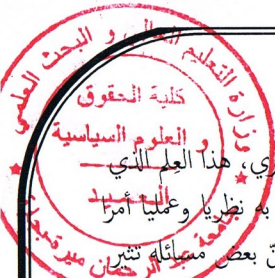 وزارة التعليم العالي و البحث العلمي
كلية الحقوق
و العلوم السياسية
العميد
جامعة عبد الرحمان ميرة بجاية
ري، هذا العِلم الذي
به نظريا وعمليا أمرا
نّ بعض مسائله تثير